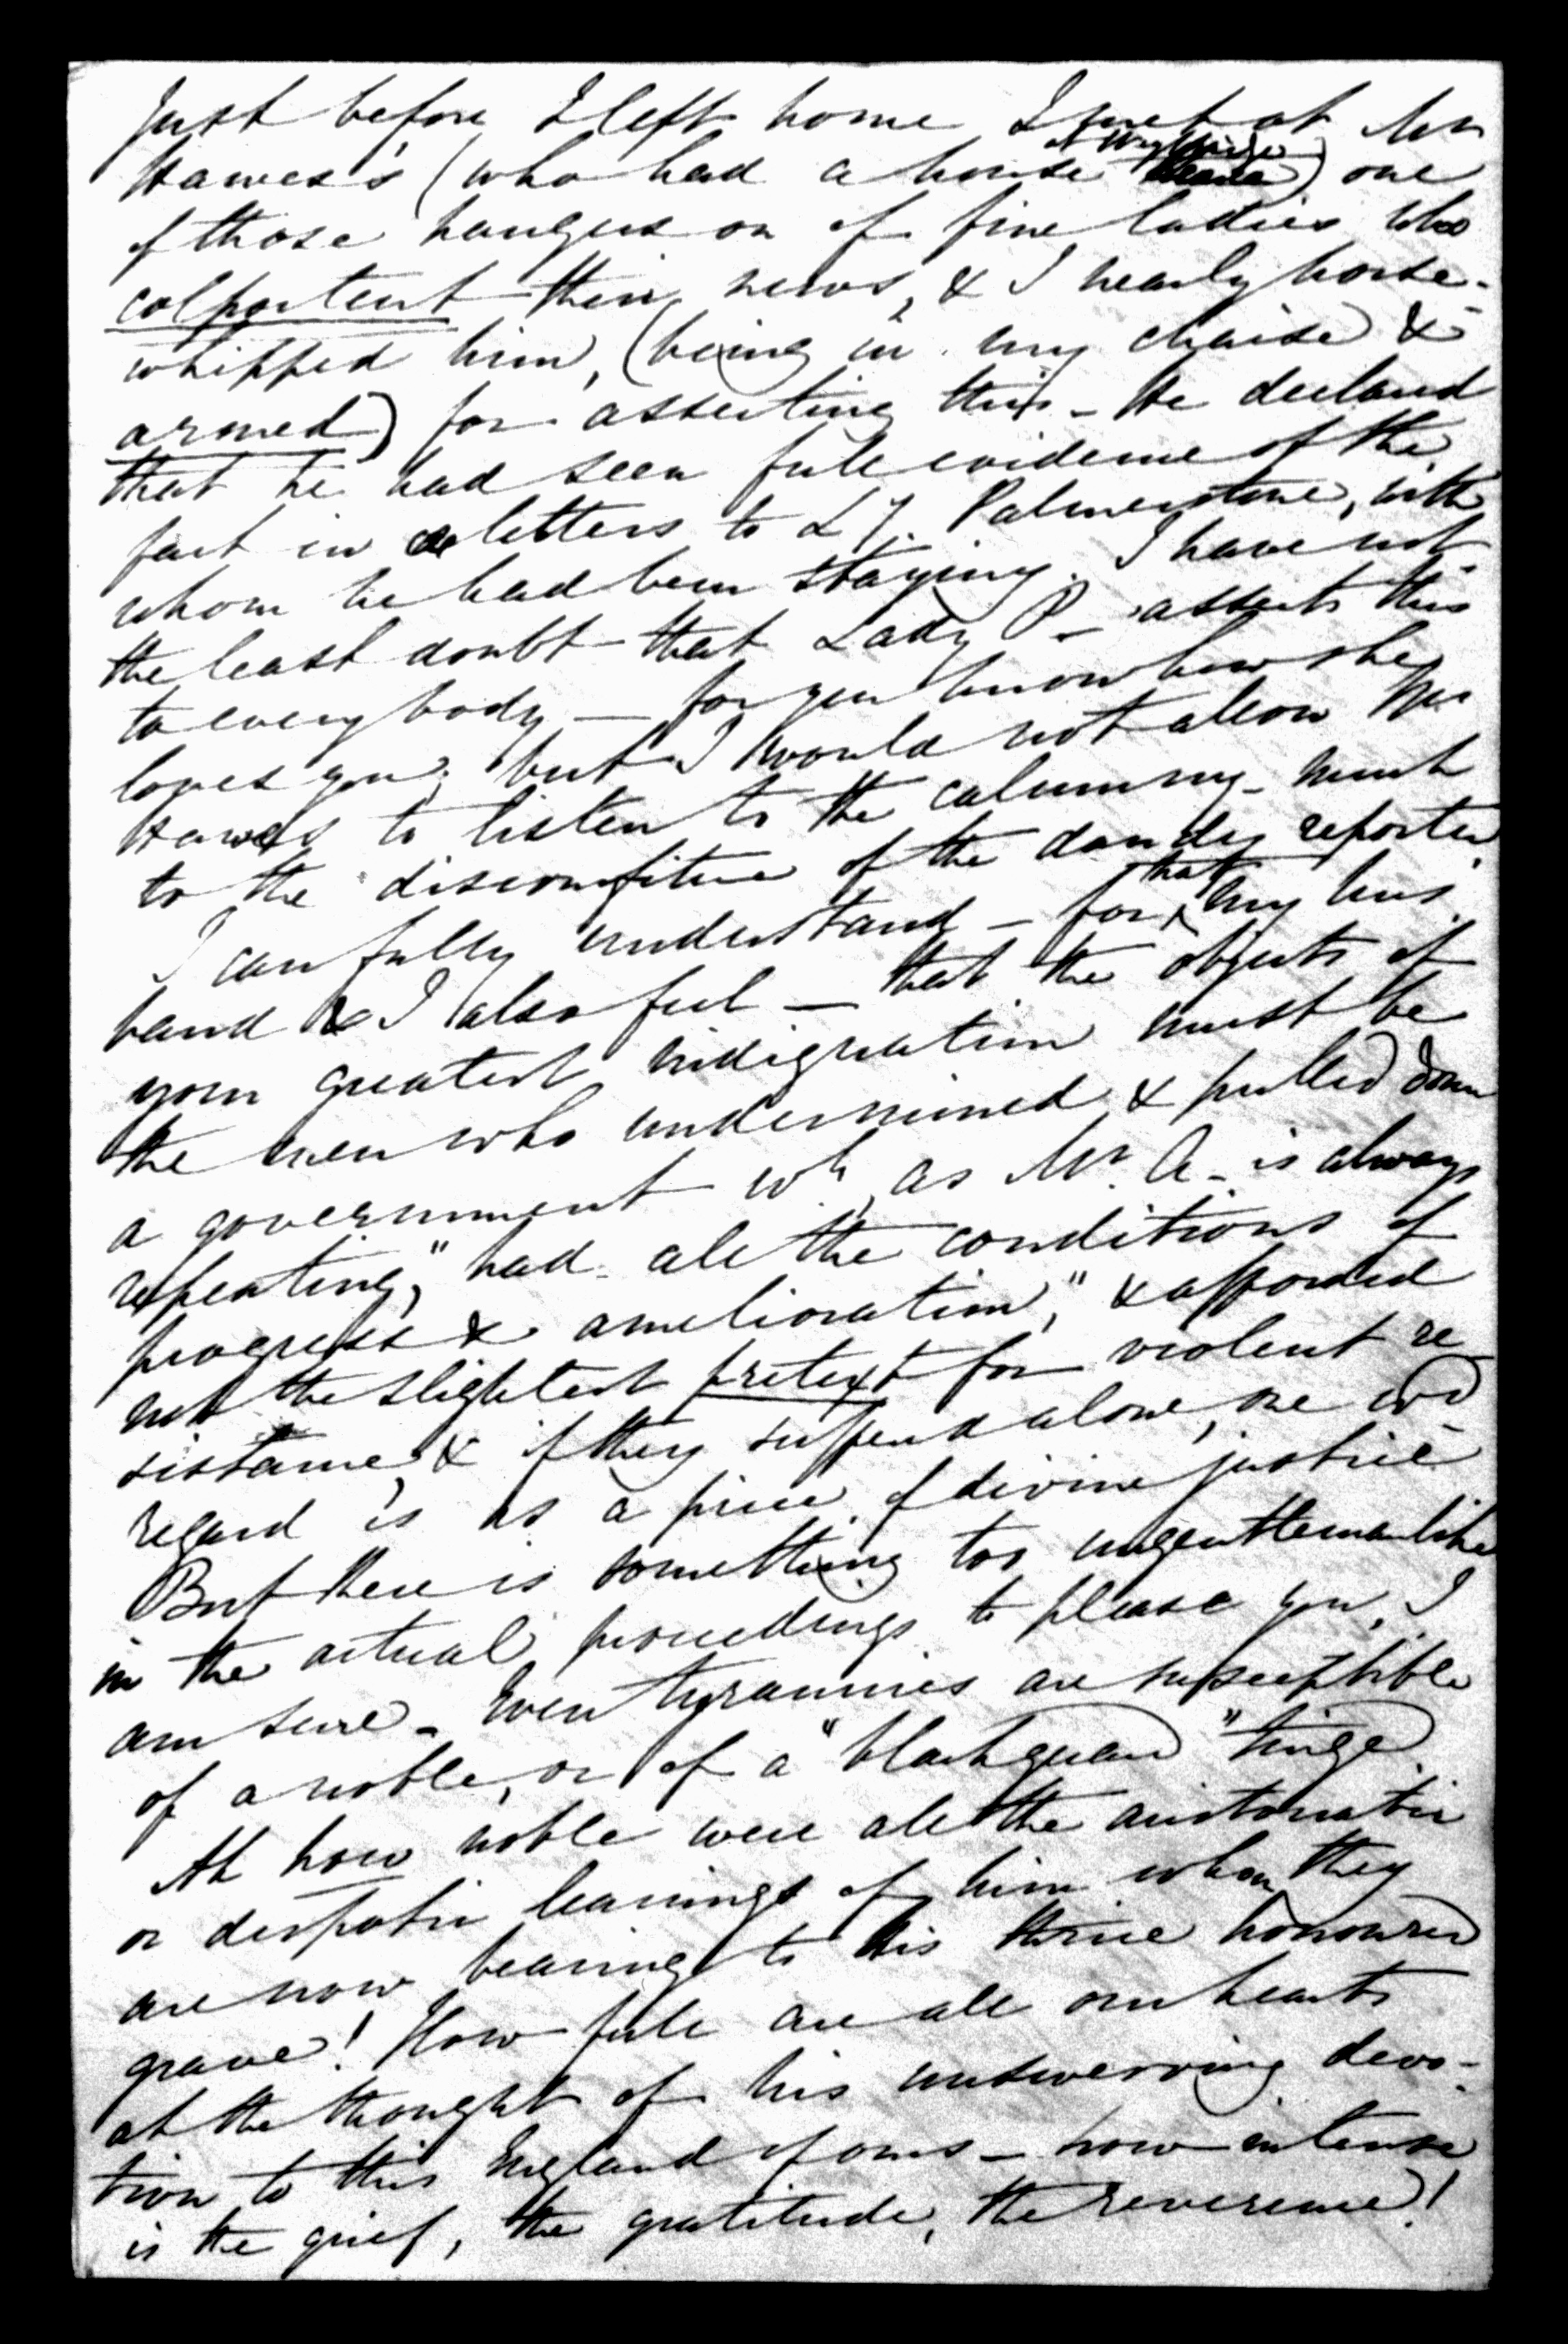 Just before I left home I met at Mrs
Hawes's (who had a house at Weybridge) one
of those hangers on of fine ladies who
colportent their news, & I nearly horse-
whipped him, (being in my chaise &
armed) for asserting this - He declared
that he had seen full evidence of the
fact in letters to Ly. Palmerstone, with
whom he had been staying. I have not
the least doubt that Lady P - asserts this
to everybody — for you know how she
loves you; but I would not allow Mrs
Hawes to listen to the calumny - much
to the discomfiture of the dandy reporter.
I can fully understand - for that my hus
band & I also feel — that the objects of
your greatest indignation must be
the men who undermined & pulled down
a government wh. as Mr. A - is always
repeating, "had all the conditions of
progress & amelioration," & afforded
not the slightest pretext for violent re-
sistance, & if they suffered alone, one wd.
regard is as a piece of divine justice
But there is something too ungentlemanlike
in the actual proceedings to please you, I
am sure - Even tyrannies are susceptible
of a noble, or of a "blackguard" tinge
Ah how noble were all the aristocratic
or despotic leanings of him whom they
are now bearing to his thrice honoured
grave! How full are all our hearts
at the thought of his unswerving devo-
tion to this England of ours - how intense
is the grief, the gratitude, the reverence!